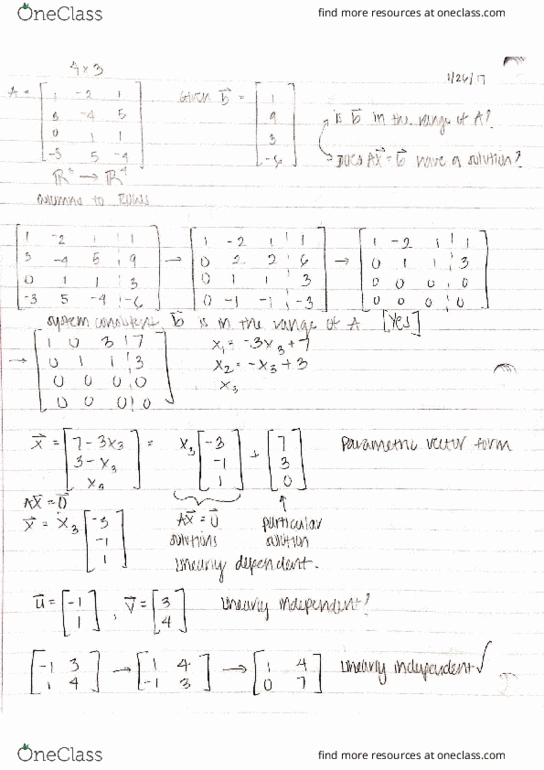 OneClass
find more resources at oneclass.com
4x3
1/26/17
A = [ 1 -2 1
3 -4 5
0 1 1
-3 5 -4 ]
Given b⃗ = [ 1
9
3
-6 ]
Is b⃗ in the range of A?
Does Ax⃗ = b⃗ have a solution?
columns to rows
[ 1 -2 1 ¦ 1
3 -4 5 ¦ 9
0 1 1 ¦ 3
-3 5 -4 ¦ -6 ]
→ [ 1 -2 1 ¦ 1
0 2 2 ¦ 6
0 1 1 ¦ 3
0 -1 -1 ¦ -3 ]
→ [ 1 -2 1 ¦ 1
0 1 1 ¦ 3
0 0 0 ¦ 0
0 0 0 ¦ 0 ]
system consistent, b⃗ is in the range of A [Yes]
→ [ 1 0 3 ¦ 7
0 1 1 ¦ 3
0 0 0 ¦ 0
0 0 0 ¦ 0 ]
x₁ = -3x₃ + 7
x₂ = -x₃ + 3
x₃
x⃗ = [ 7 - 3x₃
3 - x₃
x₃ ]
= x₃ [ -3
-1
1 ]
+ [ 7
3
0 ]
Parametric vector form
Ax⃗ = 0⃗
x⃗ = x₃ [ -3
-1
1 ]
Ax⃗ = 0⃗
solutions
particular
solution
linearly dependent.
u⃗ = [ -1
1 ]
, v⃗ = [ 3
4 ]
linearly independent?
[ -1 3
1 4 ]
→ [ 1 4
-1 3 ]
→ [ 1 4
0 7 ]
linearly independent ✓
OneClass
find more resources at oneclass.com